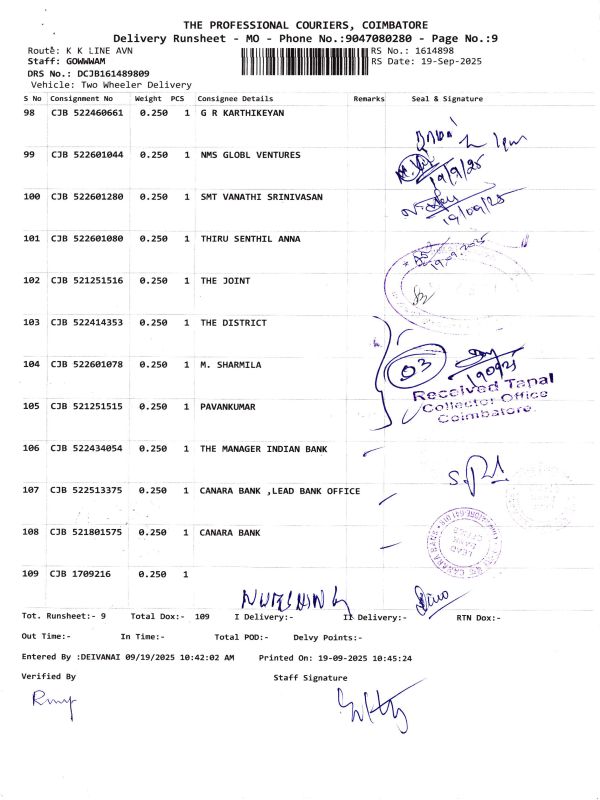 THE PROFESSIONAL COURIERS, COIMBATORE
Delivery Runsheet - MO - Phone No.:9047080280 - Page No.:9
Route: K K LINE AVN RS No.: 1614898
Staff: GOWWWAM RS Date: 19-Sep-2025
DRS No.: DCJB161489809
Vehicle: Two Wheeler Delivery
S No Consignment No Weight PCS Consignee Details Remarks Seal & Signature
98 CJB 522460661 0.250 1 G R KARTHIKEYAN
99 CJB 522601044 0.250 1 NMS GLOBL VENTURES
19/9/25
100 CJB 522601280 0.250 1 SMT VANATHI SRINIVASAN
19/09/25
101 CJB 522601080 0.250 1 THIRU SENTHIL ANNA
102 CJB 521251516 0.250 1 THE JOINT
103 CJB 522414353 0.250 1 THE DISTRICT
03
104 CJB 522601078 0.250 1 M. SHARMILA
Received Tapal
Collector Office
Coimbatore.
105 CJB 521251515 0.250 1 PAVANKUMAR
106 CJB 522434054 0.250 1 THE MANAGER INDIAN BANK
107 CJB 522513375 0.250 1 CANARA BANK ,LEAD BANK OFFICE
108 CJB 521801575 0.250 1 CANARA BANK
109 CJB 1709216 0.250 1
Tot. Runsheet:- 9 Total Dox:- 109 I Delivery:- II Delivery:- RTN Dox:-
Out Time:- In Time:- Total POD:- Delvy Points:-
Entered By :DEIVANAI 09/19/2025 10:42:02 AM Printed On: 19-09-2025 10:45:24
Verified By Staff Signature